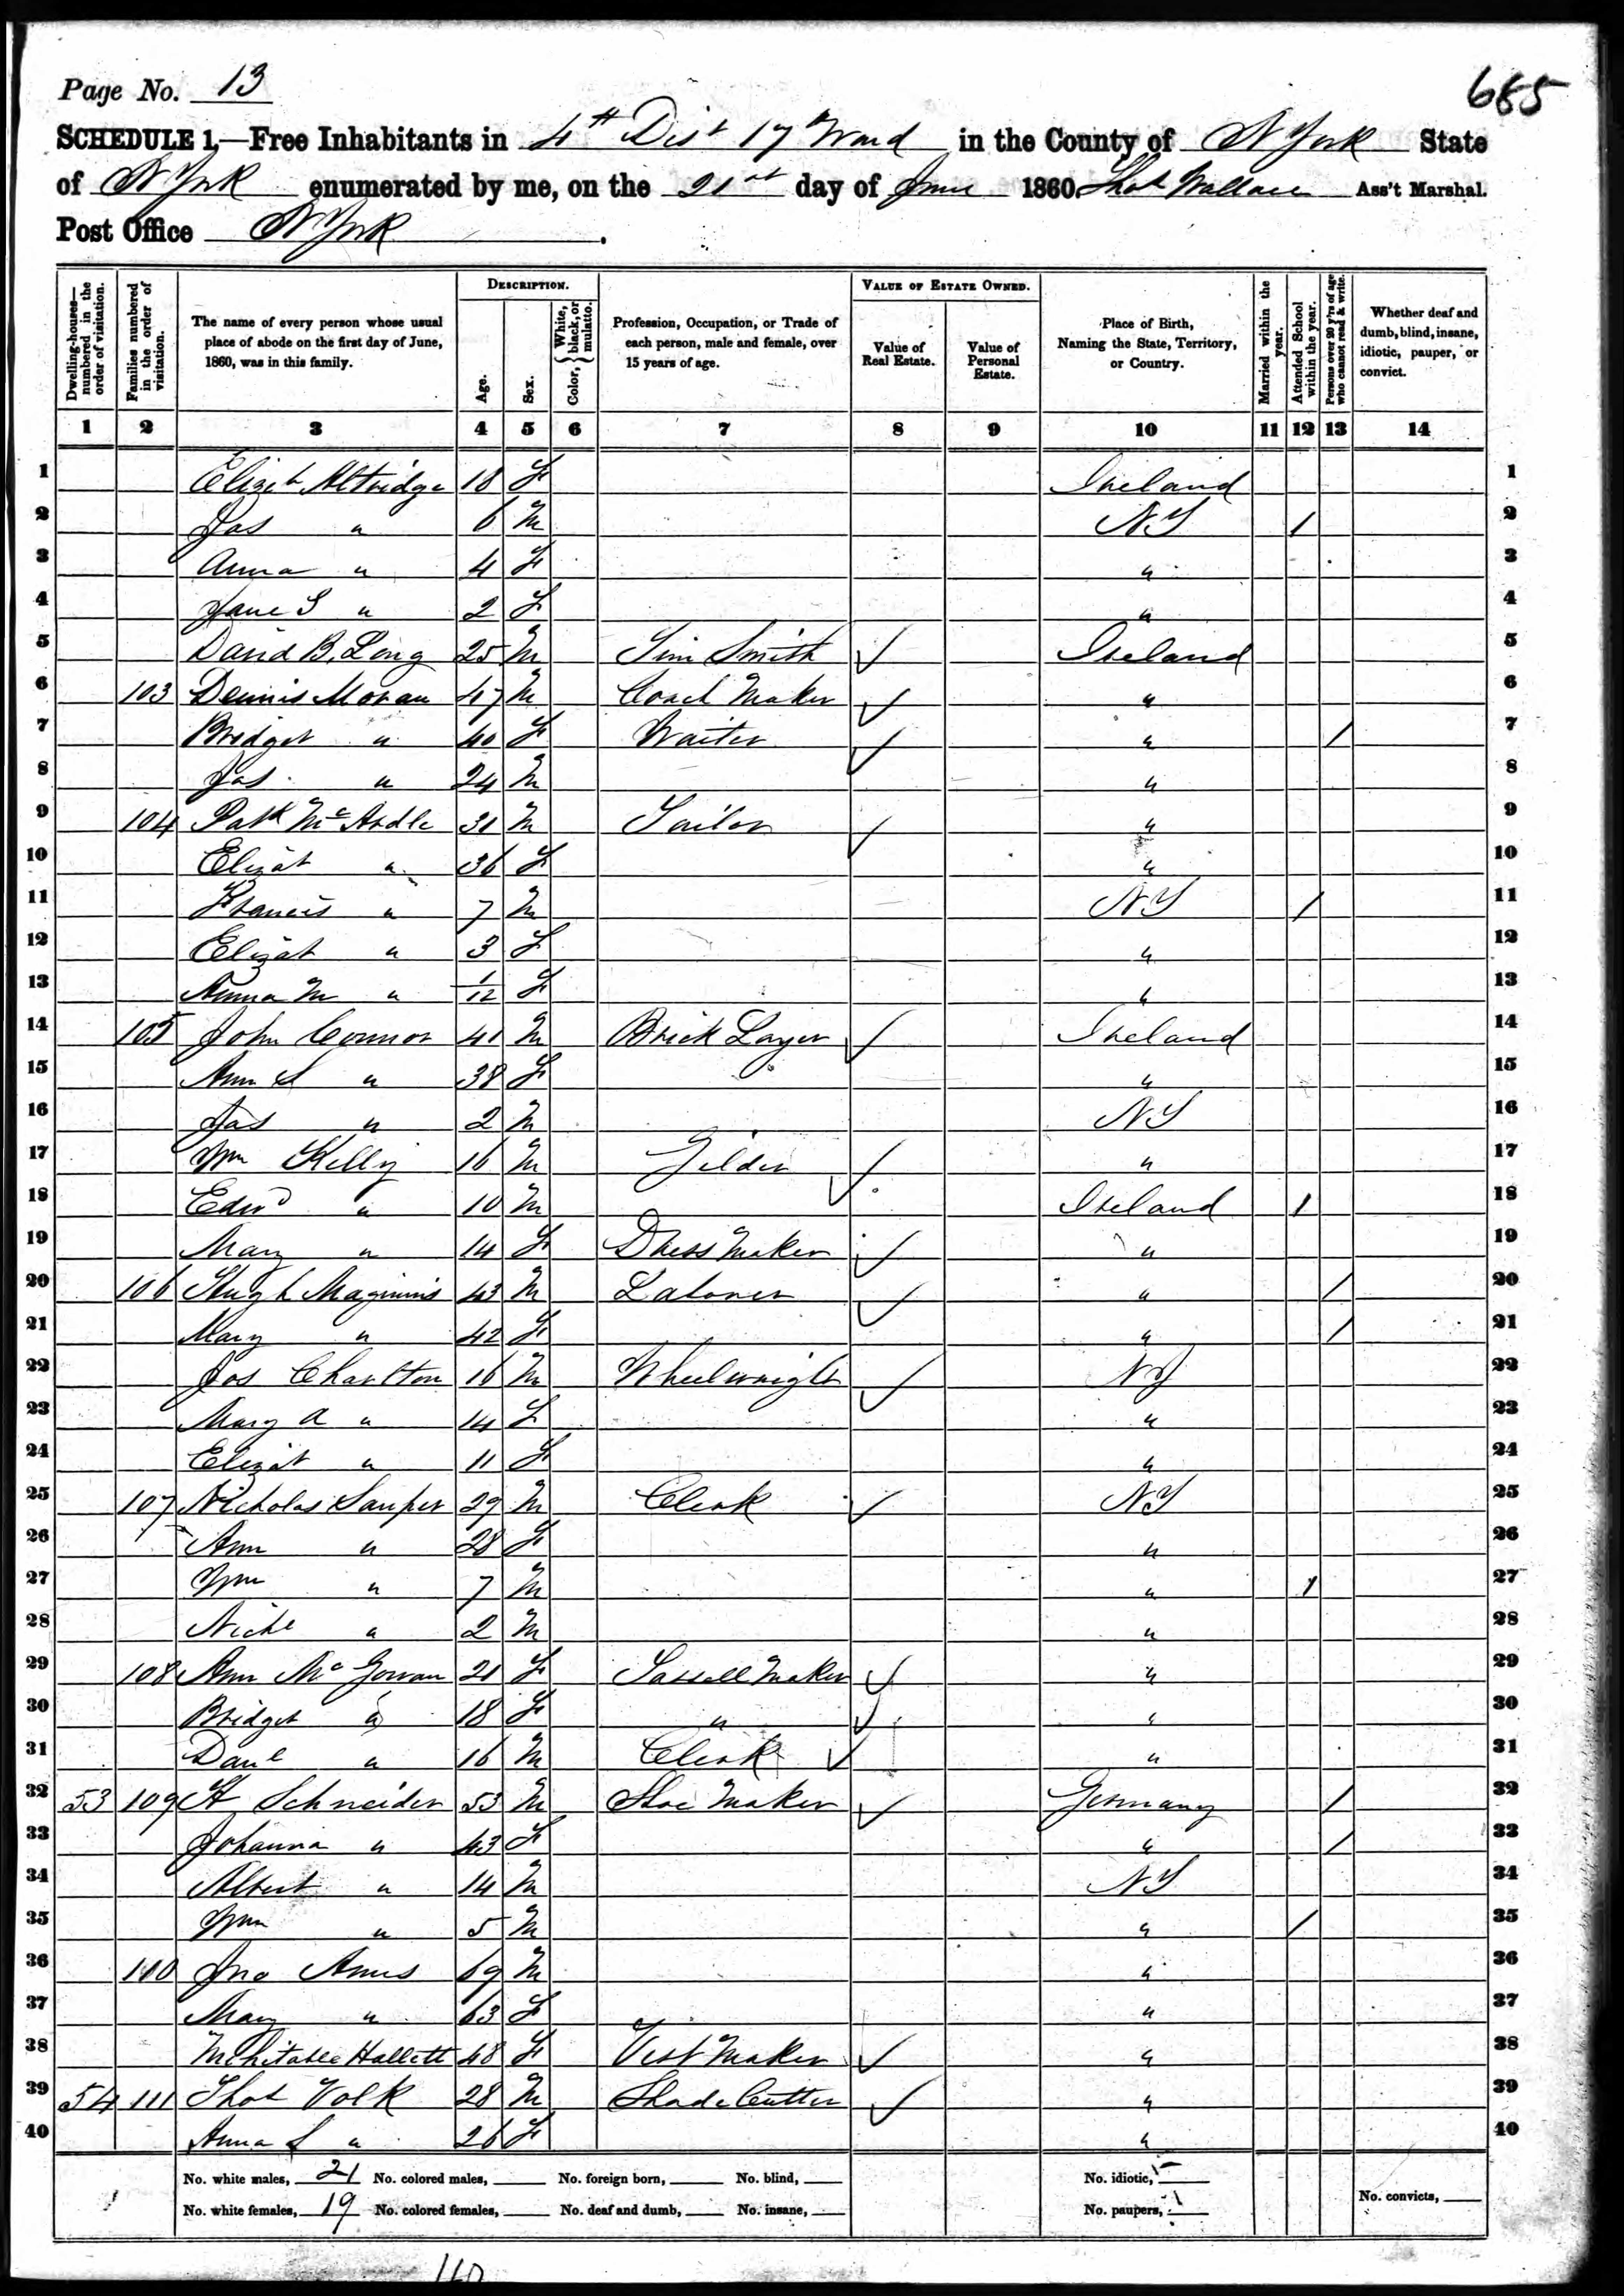 Page No. 13
685
SCHEDULE 1.—Free Inhabitants in 4th Dist 17 Ward in the County of N York State
of N York enumerated by me, on the 21st day of June 1860. Thos Wallace Ass't Marshal.
Post Office N York.
Dwelling-houses—numbered in the order of visitation.
Families numbered in the order of visitation.
The name of every person whose usual place of abode on the first day of June, 1860, was in this family.
DESCRIPTION.
Age.
Sex.
Color, { White, black, or mulatto.
Profession, Occupation, or Trade of each person, male and female, over 15 years of age.
VALUE OF ESTATE OWNED.
Value of Real Estate.
Value of Personal Estate.
Place of Birth, Naming the State, Territory, or Country.
Married within the year.
Attended School within the year.
Persons over 20 y'rs of age who cannot read & write.
Whether deaf and dumb, blind, insane, idiotic, pauper, or convict.
1 2 3 4 5 6 7 8 9 10 11 12 13 14
1 Elizth Altridge 18 F Ireland 1
2 Jas " 6 M NY / 2
3 Anna " 4 F " 3
4 Jane S " 2 F " 4
5 David B. Long 25 M Tin Smith ✓ Ireland 5
6 103 Dennis Moran 47 M Coach Maker ✓ " 6
7 Bridget " 40 F Waiter ✓ " / 7
8 Jas " 24 M " 8
9 104 Patk McArdle 31 M Tailor ✓ " 9
10 Elizat " 36 F " 10
11 Francis " 7 M NY / 11
12 Elizat " 3 F " 12
13 Anna M " 1/12 F " 13
14 105 John Connor 41 M Brick Layer ✓ Ireland 14
15 Ann S " 38 F " 15
16 Jas " 2 M NY 16
17 Wm Kelly 16 M Gilder ✓ " 17
18 Edwd " 10 M ✓ Ireland / 18
19 Mary " 14 F Dress Maker ✓ " 19
20 106 Hugh Maginnis 43 M Laborer ✓ " / 20
21 Mary " 42 F " / 21
22 Jos Charlton 16 M Wheelwright ✓ NJ 22
23 Mary A " 14 F " 23
24 Elizat " 11 F " 24
25 107 Nicholas Sauper 29 M Clerk ✓ NY 25
26 Ann " 28 F " 26
27 Wm " 7 M " / 27
28 Nichl " 2 M " 28
29 108 Ann McGowan 21 F Tassell Maker ✓ " 29
30 Bridget " 18 F " ✓ " 30
31 Danl " 16 M Clerk ✓ " 31
32 53 109 H Schneider 53 M Shoe Maker ✓ Germany / 32
33 Johanna " 43 F " / 33
34 Albert " 14 M NY 34
35 Wm " 5 M " / 35
36 110 Jno Ames 69 M " 36
37 Mary " 63 F " 37
38 Mehitable Hallett 48 F Vest Maker ✓ " 38
39 54 111 Thos Volk 28 M Shade Cutter ✓ " 39
40 Anna S " 26 F " 40
No. white males, 21 No. colored males, No. foreign born, No. blind, No. idiotic,
No. white females, 19 No. colored females, No. deaf and dumb, No. insane, No. paupers, No. convicts,
110